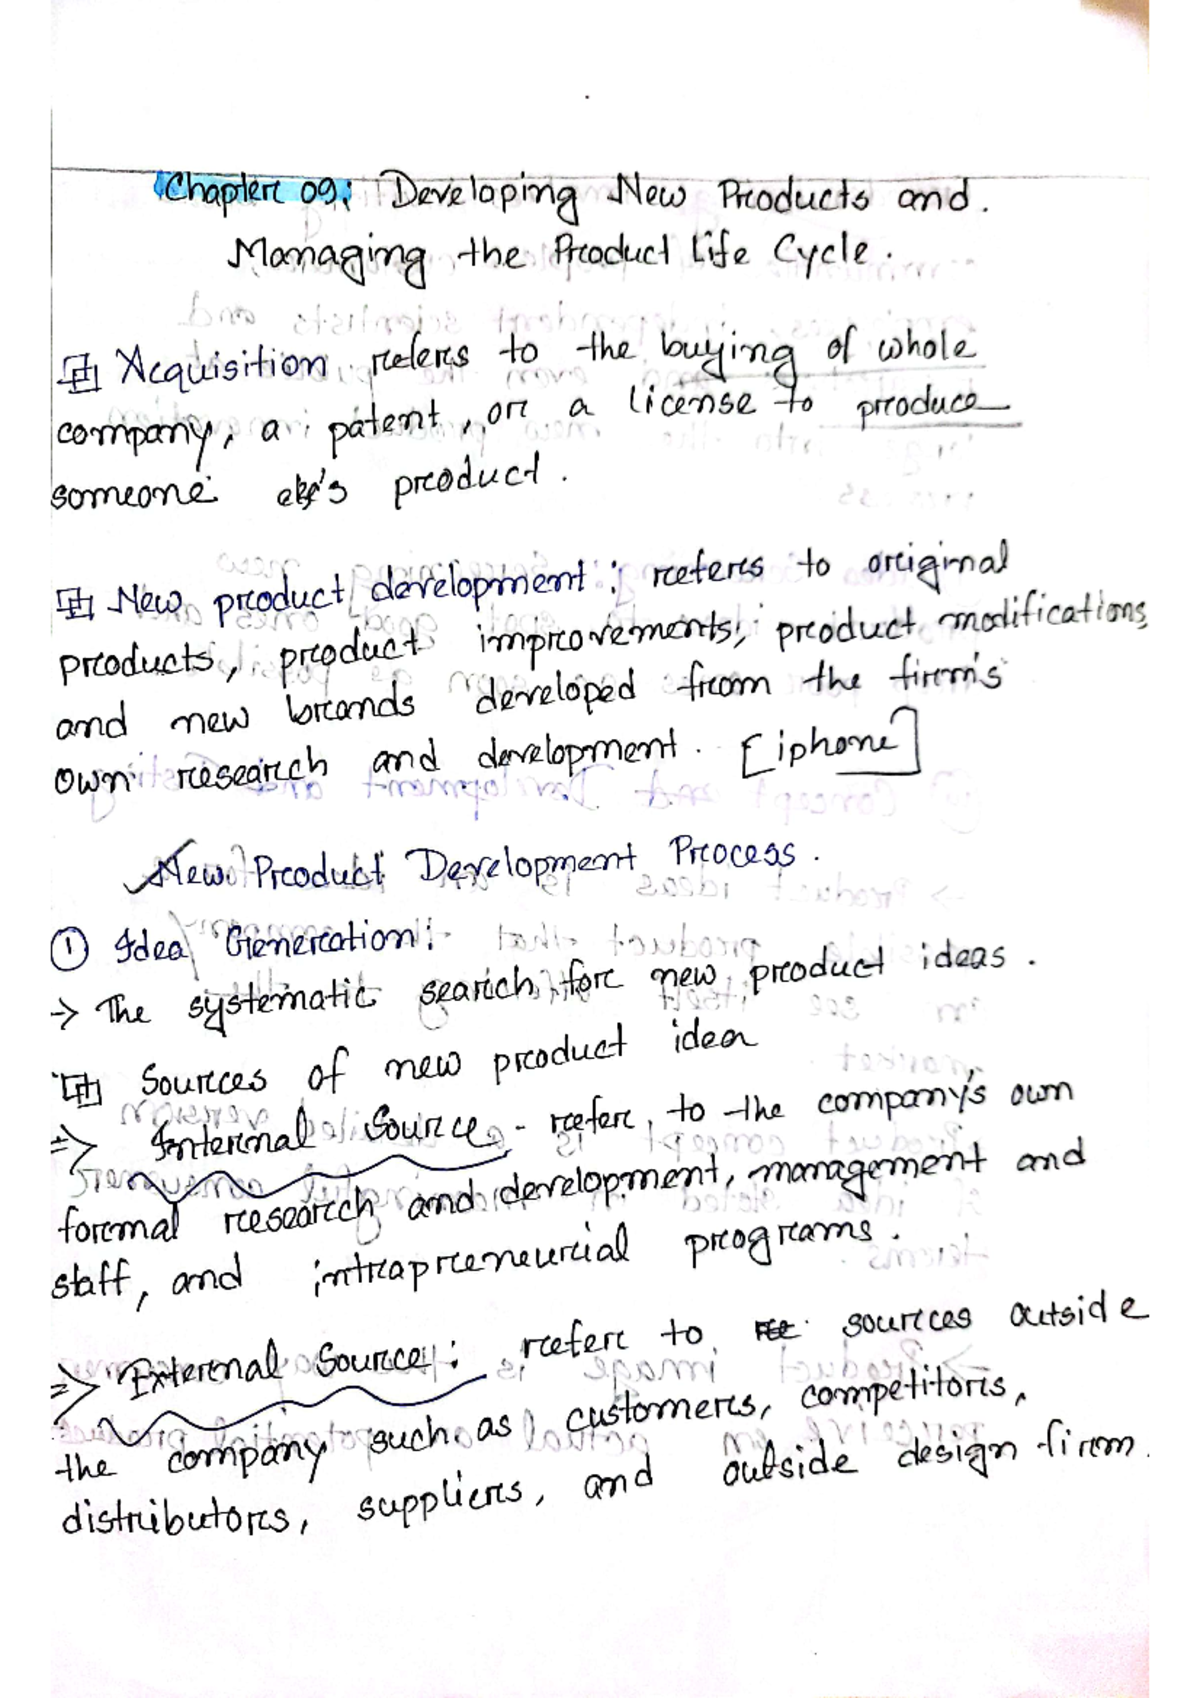 Chapter 09: Developing New Products and.
Managing the Product Life Cycle.
Acquisition refers to the buying of whole
company, a patent, or a license to produce
someone else's product.
New product development: refers to original
products, product improvements, product modifications,
and new brands developed from the firm's
own research and development. [iphone]
New Product Development Process.
① Idea Generation:
→ The systematic search for new product ideas.
Sources of new product idea
⇒ Internal Source - refer to the company's own
formal research and development, management and
staff, and intrapreneurial programs.
⇒ External Source: refer to sources outside
the company such as customers, competitors,
distributors, suppliers, and outside design firm.